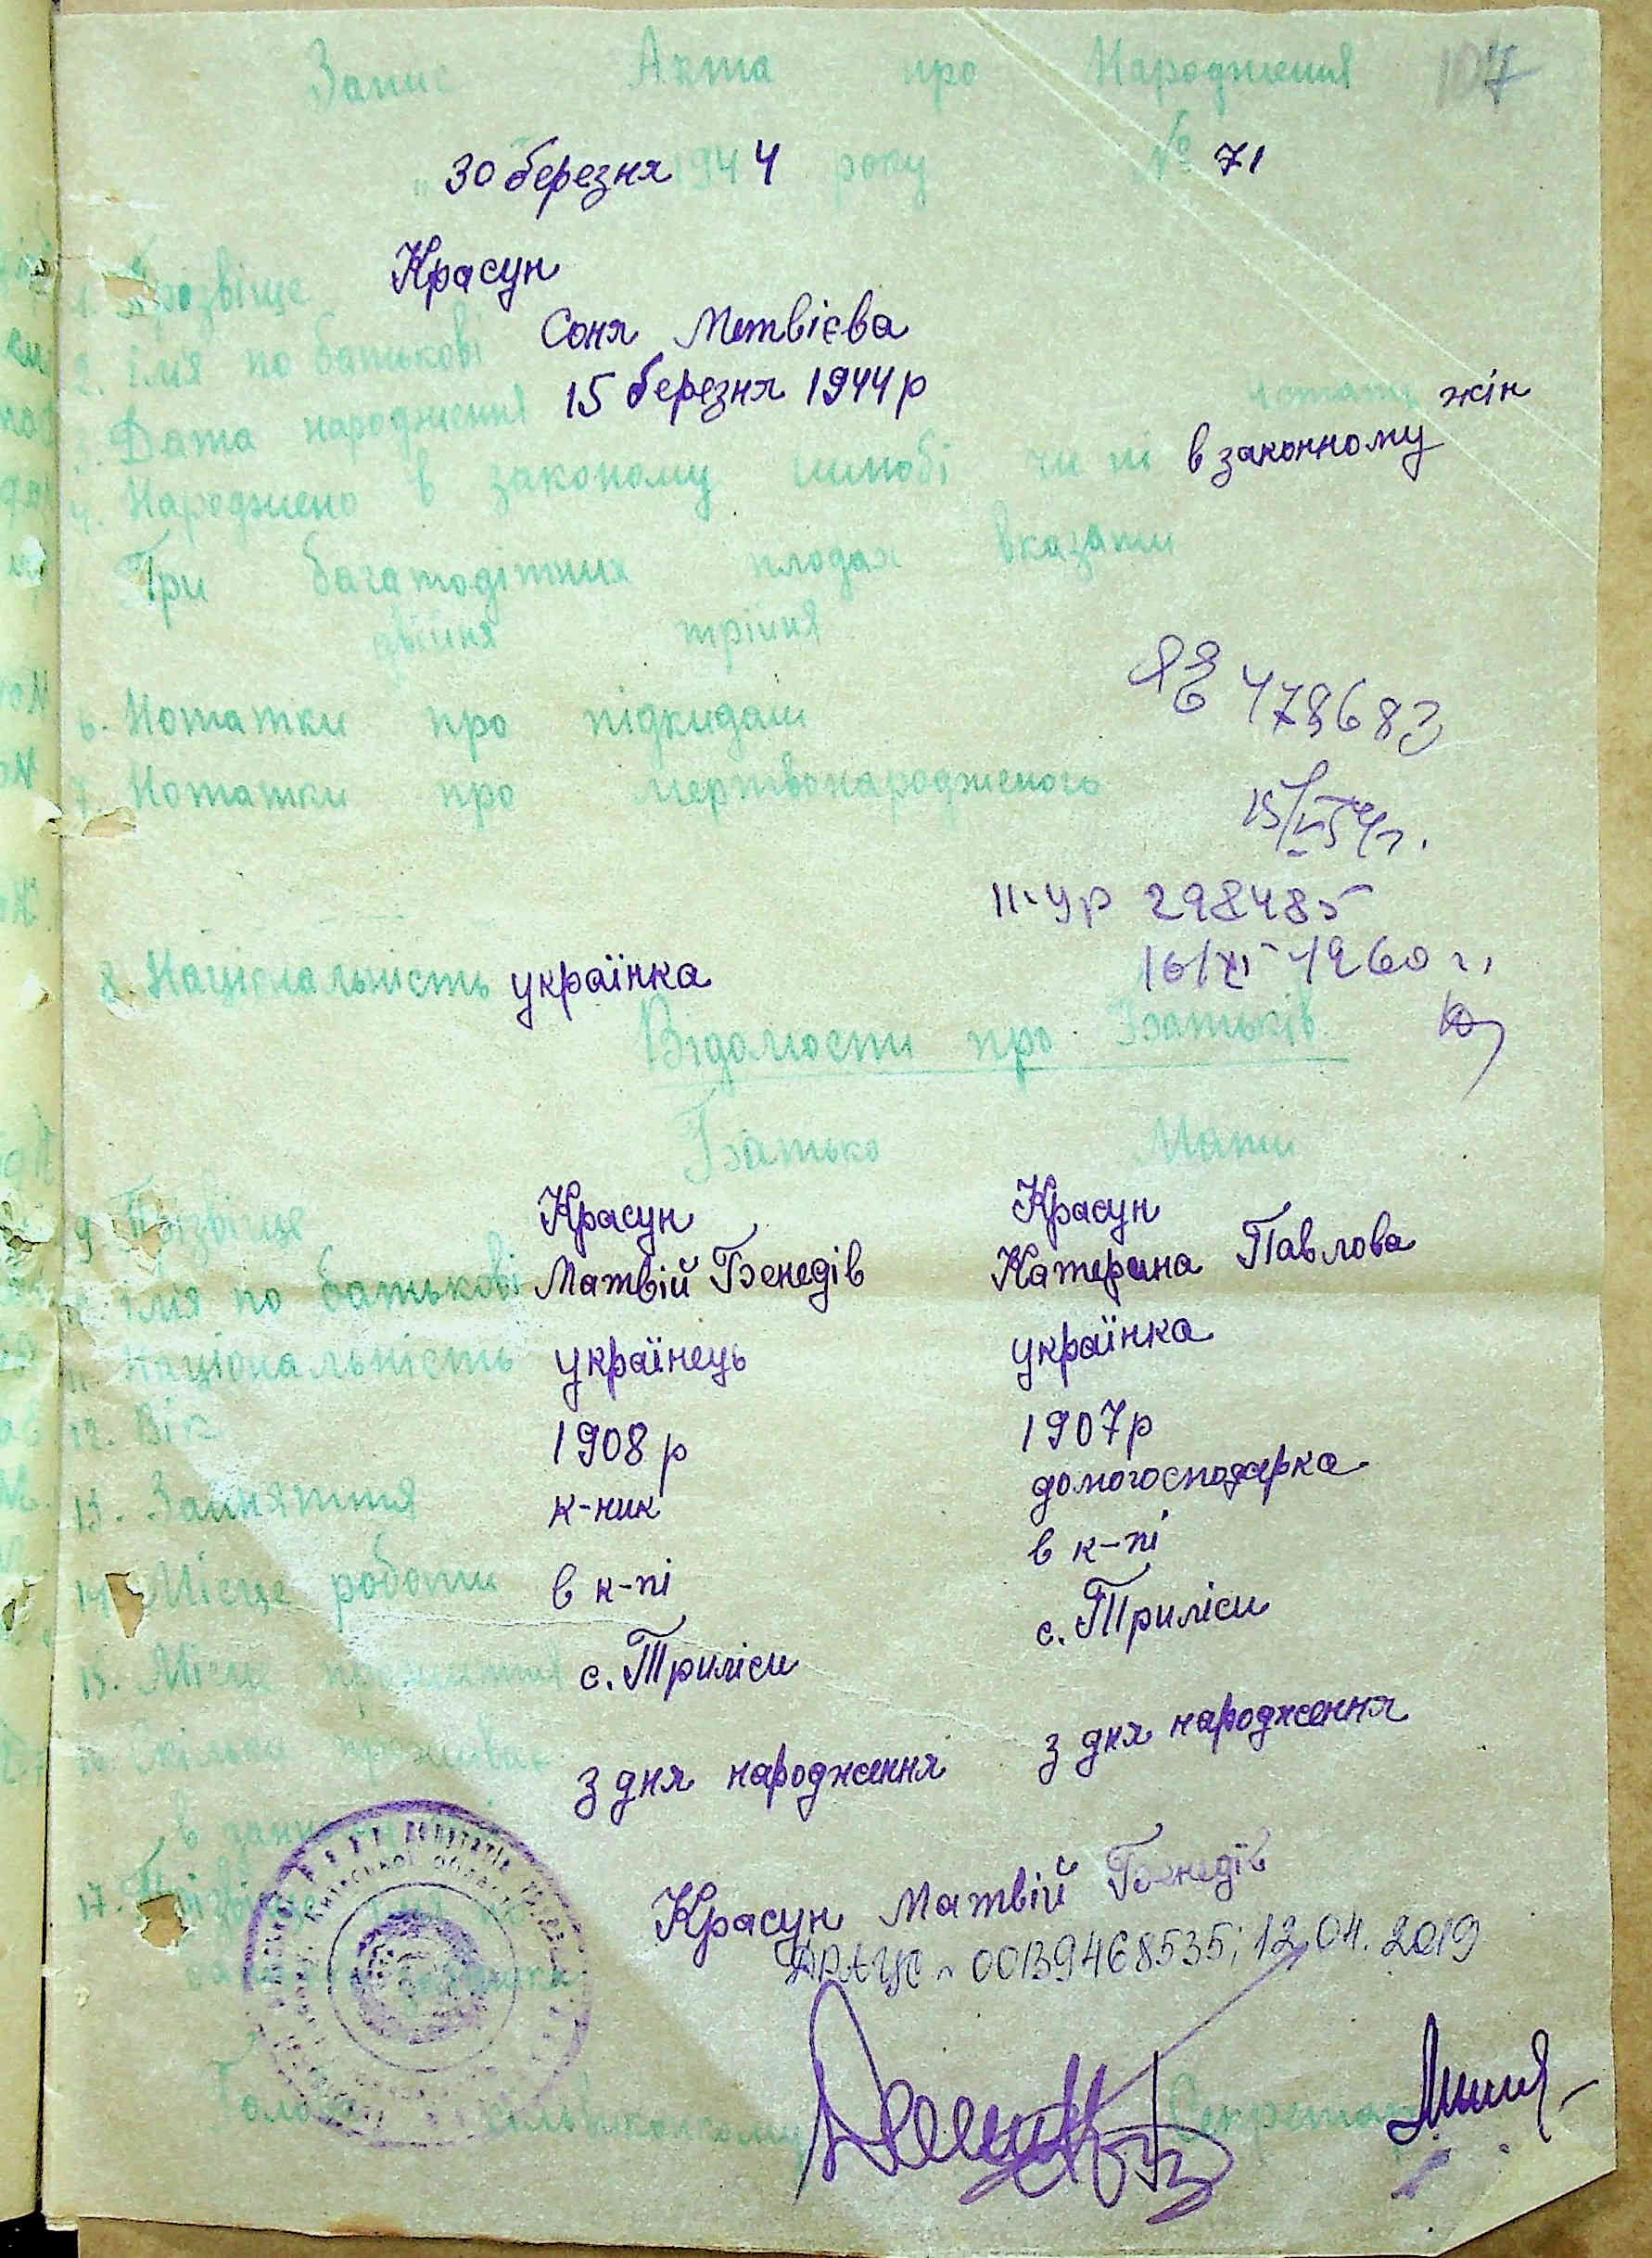 Запис Акта про Народження 107
„ 30 березня 1944 року № 71
1. Прозвіще Красун
2. імя по батькові Соня Метвієва
3. Дата народження 15 березня 1944 р жін
4. Народжено в законому шлюбі чи ні в законному
При багатодітних плодах вказати
двійня трійня
6. Нотатки про підкидаш
ЯЗ 478683
7. Нотатки про мертвонародженого
II-УР 298485
16/XI-1960 г.
8. Національність українка
Відомости про Батьків
Батько Мати
9 Прізвіще Красун Красун
10. імя по батькові Матвій Бенедів Катерина Павлова
11. Національність українець українка
12. Вік 1908 р 1907 р
13. Заиняття к-ник домогосподарка
14. Місце роботи в к-пі в к-пі
15. Місце прожиття с. Триліси с. Триліси
16. скільки проживає з дня народження з дня народження
в данн
17. Прізвіще Красун Матвій Бенедів
ДРАЦС ~ 00139468535; 12.04.2019
Голова сільвиконкому Секретар